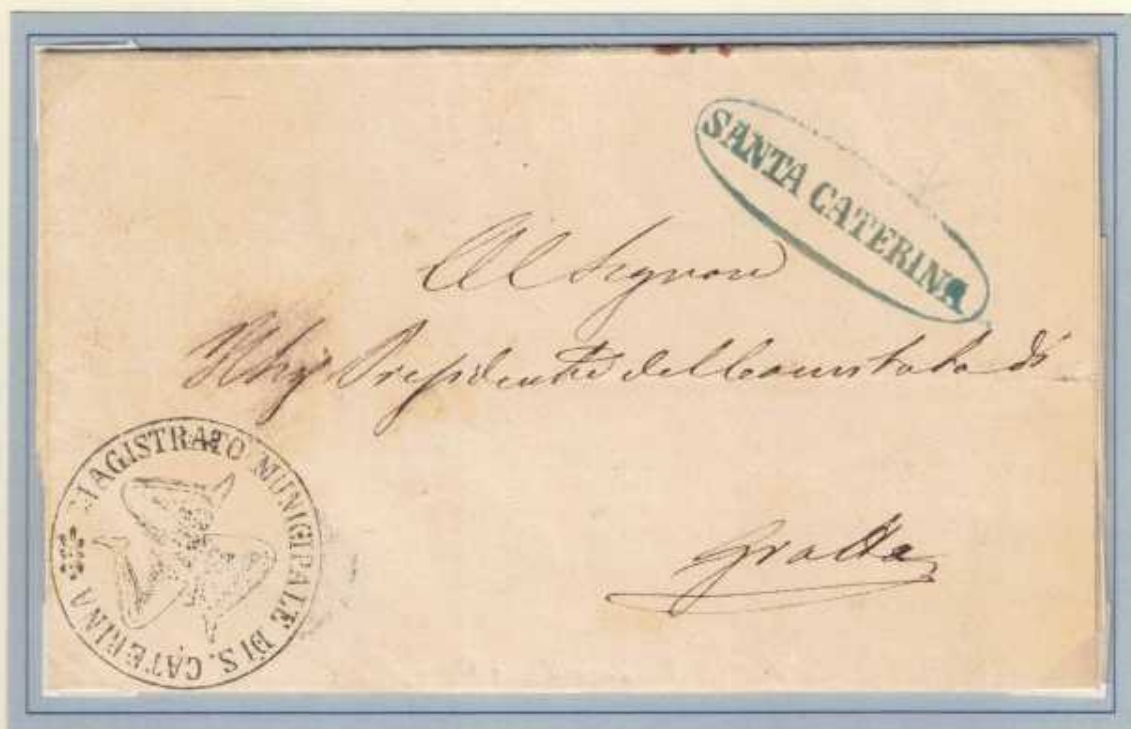 SANTA CATERINA
Al Signore
Presidente del Comitato di
Grotte
MAGISTRATO MUNICIPALE DI S. CATERINA